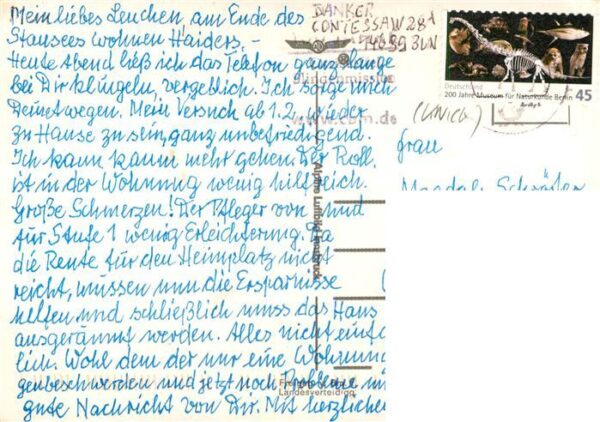 Mein liebes Lenchen, am Ende des
Stausees wohnen Haiders. –
Heute Abend ließ ich das Telefon ganz lange
bei Dir klingeln, vergeblich. Ich sorge mich
Deinetwegen. Mein Versuch ab 1.2. wieder
zu Hause zu sein, ganz unbefriedigend.
Ich kann kaum mehr gehen. Der Roll.
ist in der Wohnung wenig hilfreich.
Große Schmerzen! Der Pfleger von und
für Stufe 1 wenig Erleichterung. Da
die Rente für den Heimplatz nicht
reicht, müssen nun die Ersparnisse
helfen und schließlich muss das Haus
ausgeräumt werden. Alles nicht einfa
lich. Wohl dem der nur eine Wohnung
genbeschwerden und jetzt noch Probleme mi
gute Nachricht von Dir. Mit herzlichen
DANKER
CONTESSAW 28A
www.cbm.de
Deutschland
200 Jahre Museum für Naturkunde Berlin
45
(UNICA)
Frau
Alpine Luftbild Innsbruck
Landesverteidigg.